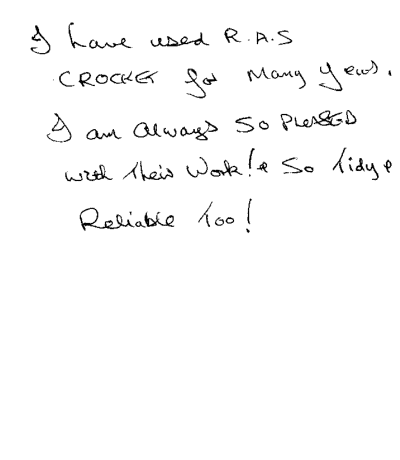 I have used R.A.S
CROCKER for Many Years.
I am always So PLEASED
with their Work! & So Tidy &
Reliable Too!